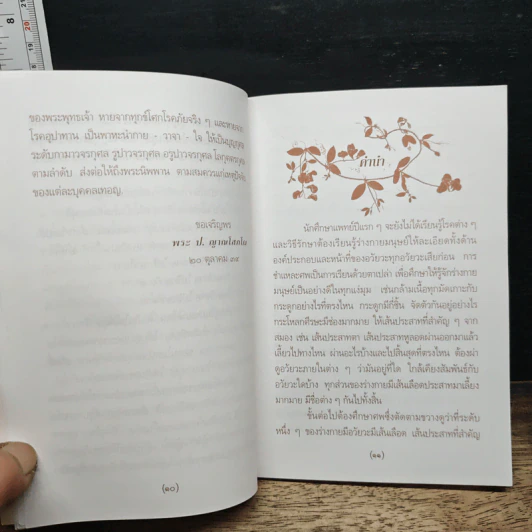 ของพระพุทธเจ้า หายจากทุกข์โศกโรคภัยจริง ๆ และหายจาก
โรคอุปาทาน เป็นพาหะนำกาย - วาจา - ใจ ให้เป็นบุญกุศล
ระดับกามาวจรกุศล รูปาวจรกุศล อรูปาวจรกุศล โลกุตตรกุศล
ตามลำดับ ส่งต่อให้ถึงพระนิพพาน ตามสมควรแก่
ของแต่ละบุคคลเทอญ.
ขอเจริญพร
พระ ป. ญาณโสภโณ
๒๐ ตุลาคม ๓๙
(๑๐)
คำนำ
นักศึกษาแพทย์ปีแรก ๆ จะยังไม่ได้เรียนรู้โรคต่าง ๆ
และวิธีรักษาต้องเรียนรู้ร่างกายมนุษย์ให้ละเอียดทั้งด้าน
องค์ประกอบและหน้าที่ของอวัยวะทุกอวัยวะเสียก่อน การ
ชำแหละศพเป็นการเรียนด้วยตาเปล่า เพื่อศึกษาให้รู้จักร่างกาย
มนุษย์เป็นอย่างดีในทุกแง่มุม เช่นกล้ามเนื้อทุกมัดเกาะกับ
กระดูกอย่างไรที่ตรงไหน กระดูกมีกี่ชิ้น จัดตัวกันอยู่อย่างไร
กระโหลกศีรษะมีช่องมากมาย ให้เส้นประสาทที่สำคัญ ๆ จาก
สมอง เช่น เส้นประสาทตา เส้นประสาทหูลอดผ่านออกมาแล้ว
เลี้ยวไปทางไหน ผ่านอะไรบ้างและไปสิ้นสุดที่ตรงไหน ต้องผ่า
ดูอวัยวะภายในต่าง ๆ ว่ามันอยู่ที่ใด ใกล้เคียงสัมพันธ์กับ
อวัยวะใดบ้าง ทุกส่วนของร่างกายมีเส้นเลือดประสาทมาเลี้ยง
มากมาย มีชื่อต่าง ๆ กันไปทั้งสิ้น
ขั้นต่อไปต้องศึกษาศพซึ่งตัดตามขวางดูว่าที่ระดับ
หนึ่ง ๆ ของร่างกายมีอวัยวะมีเส้นเลือด เส้นประสาทที่สำคัญ
(๑๑)